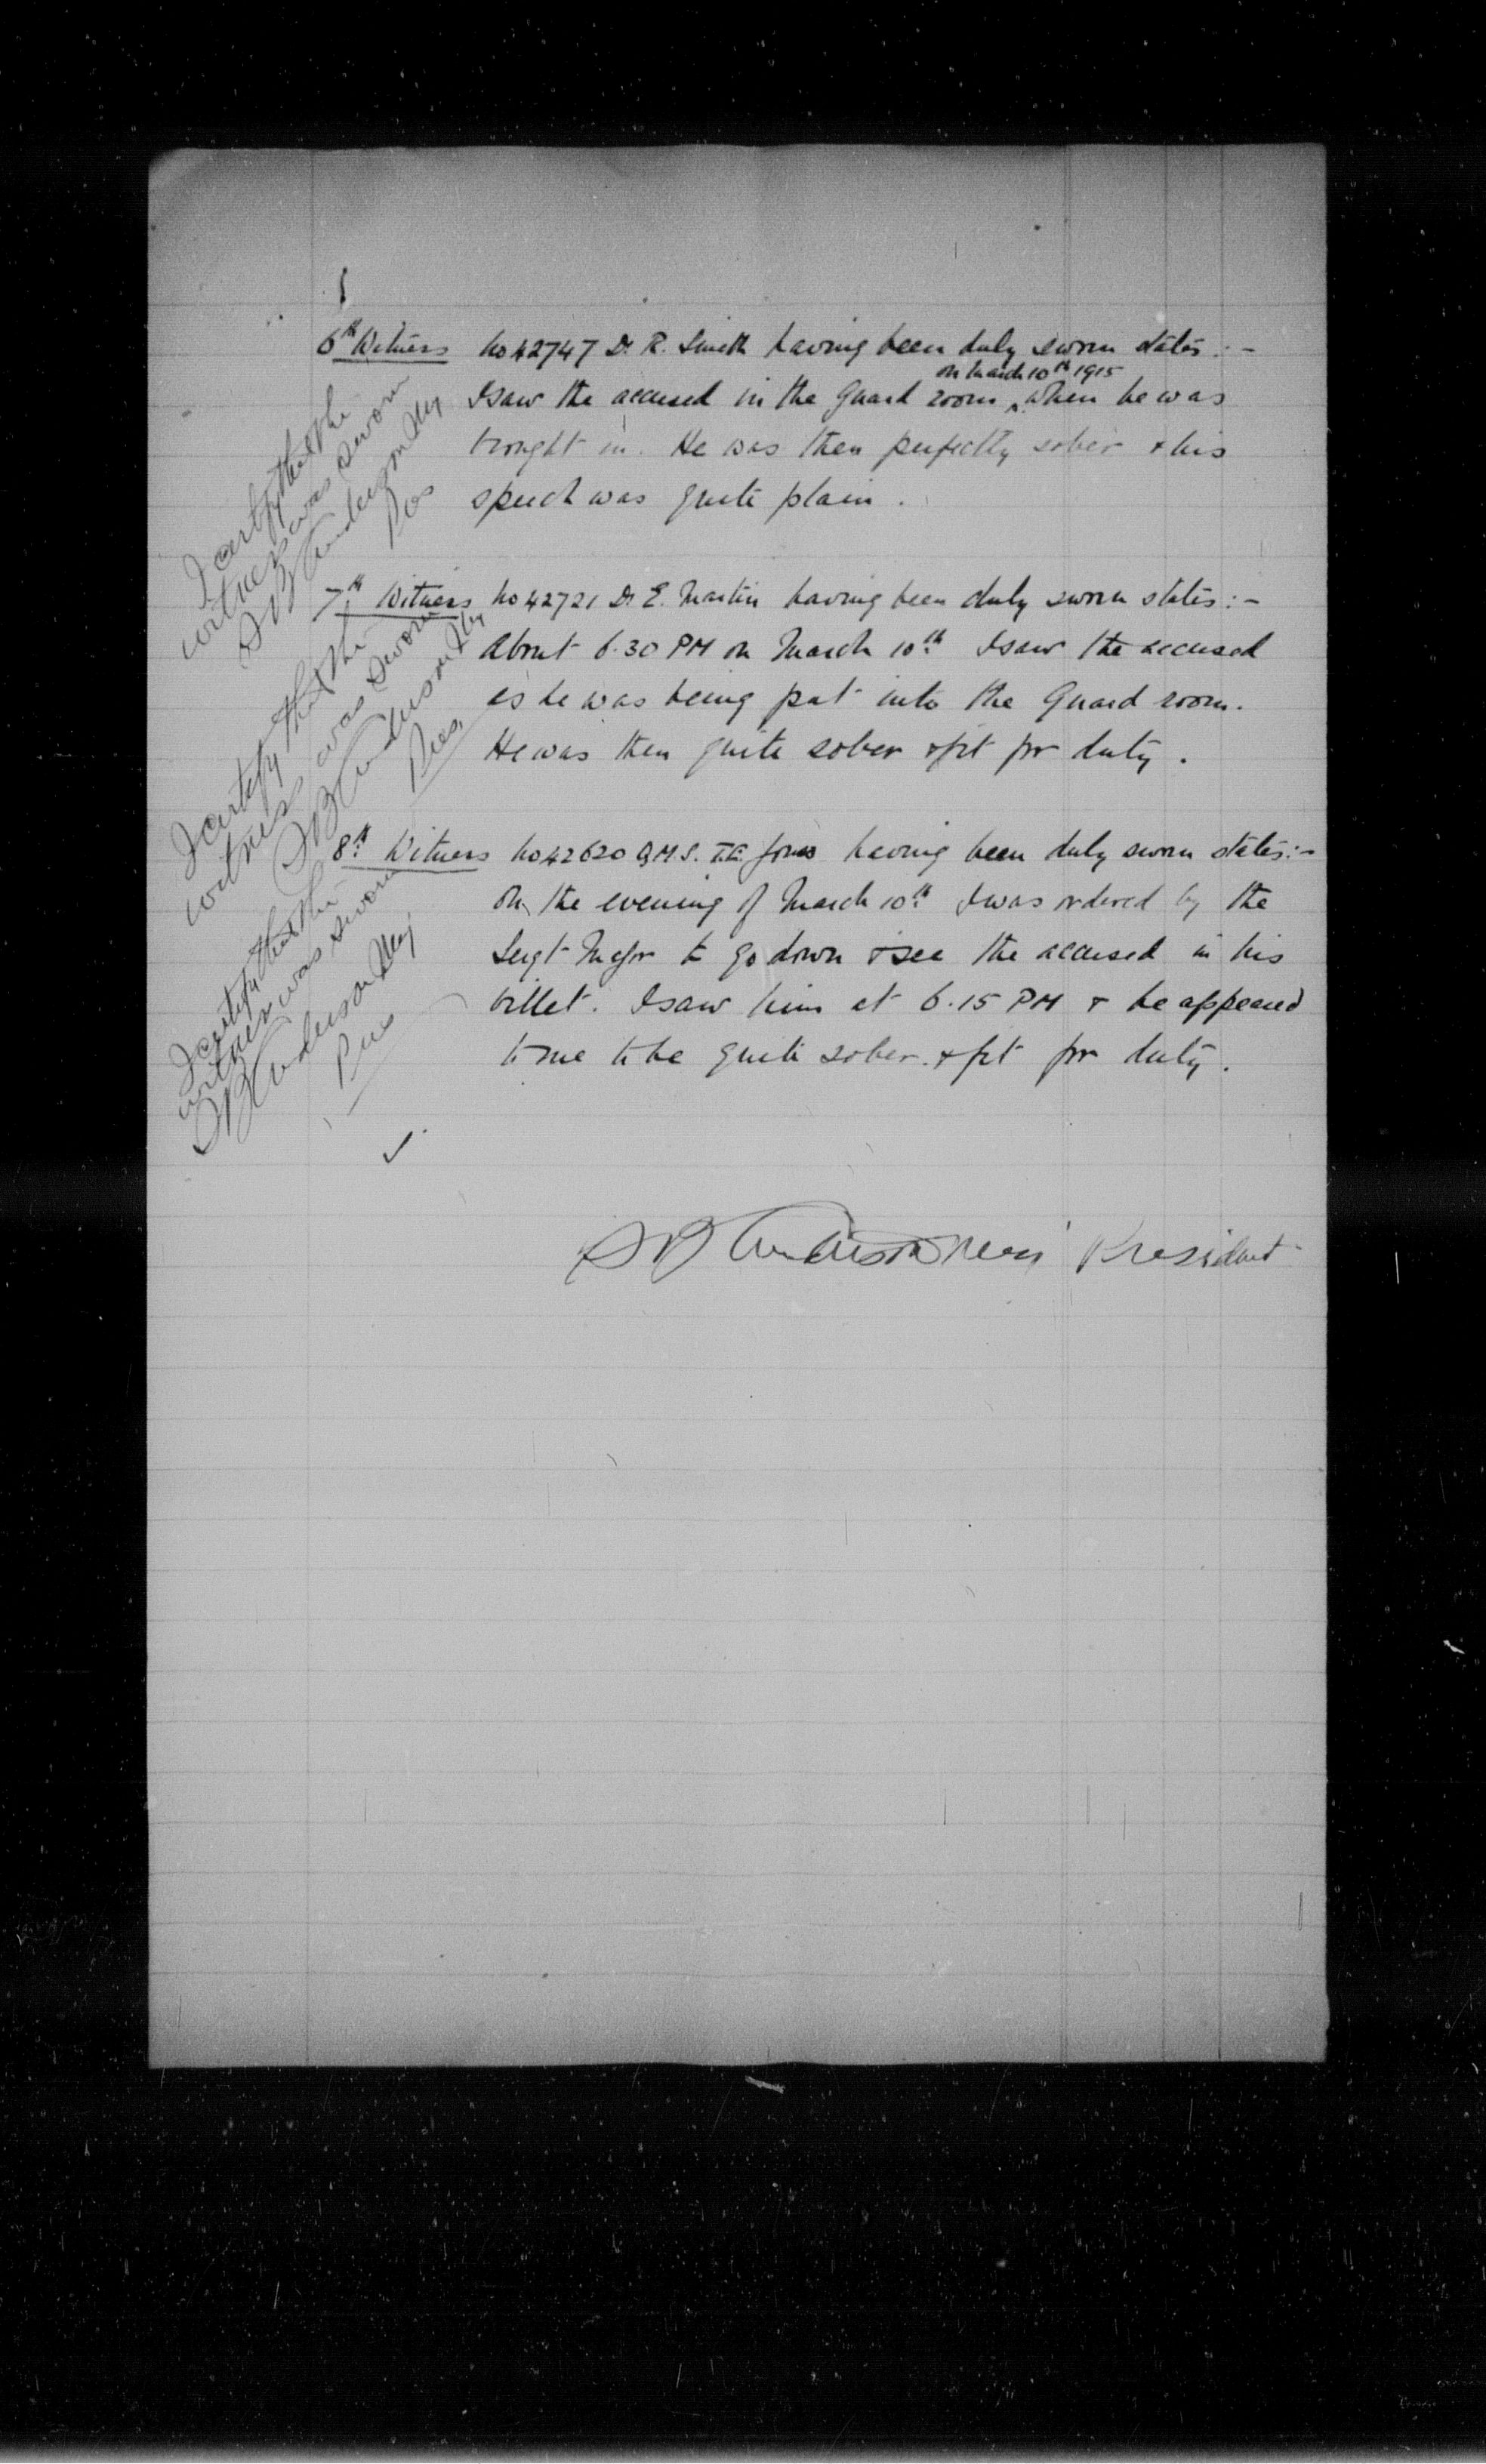 6th Witness No 42747 Dr. R. Smith having been duly sworn states :-
on March 10th 1915
I saw the accused in the Guard room ^ when he was
brought in. He was then perfectly sober & his
speech was quite plain.
I certify that the
witness was sworn
S B Anderson Maj
Pres
7th Witness No 42721 Dr. E. Martin having been duly sworn states :-
About 6.30 PM on March 10th I saw the accused
as he was being put into the Guard room.
He was then quite sober & fit for duty.
I certify that the
witness was sworn
S B Anderson Maj
Pres
8th Witness No 42620 Q.M.S. Jones having been duly sworn states :-
On the evening of March 10th I was ordered by the
Sergt Major to go down & see the accused in his
billet. I saw him at 6.15 PM & he appeared
to me to be quite sober & fit for duty.
I certify that the
witness was sworn
S B Anderson Maj
Pres
S B Anderson Maj President